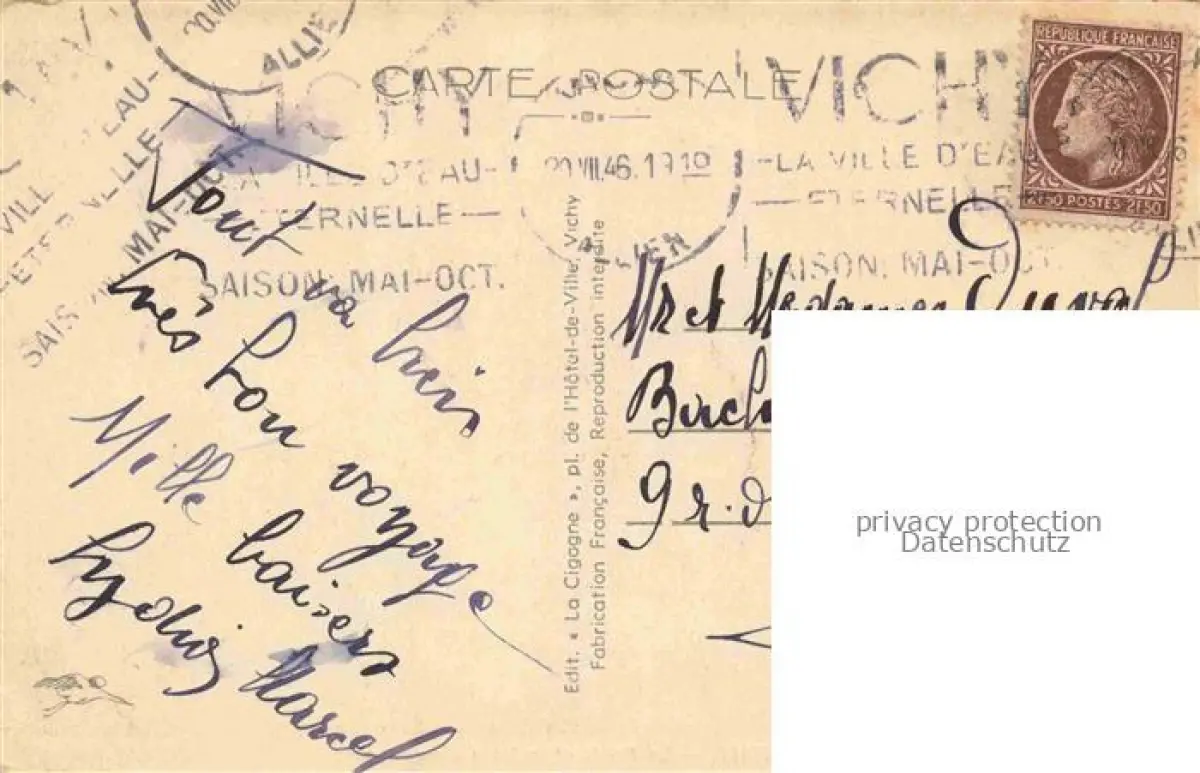 CARTE POSTALE
RÉPUBLIQUE FRANÇAISE
2F50 POSTES 2F50
VICHY
LA VILLE D'EAU-
ETERNELLE
SAISON: MAI-OCT.
20.VII.46. 19 10
ALLIER
VICHY
-LA VILLE D'EAU
ETERNELLE
SAISON: MAI-OCT.
20.VII
ALLIE
VILLE D'EAU-
ETERNELLE
SAISON: MAI-OCT
Tout va bien
très bon voyage
Mille baisers
Lydia Marcel
Edit. « La Cigogne », pl. de l'Hôtel-de-Ville, Vichy
Fabrication Française, Reproduction interdite
Mr et Mesdames Duval
9 r. d
privacy protection
Datenschutz